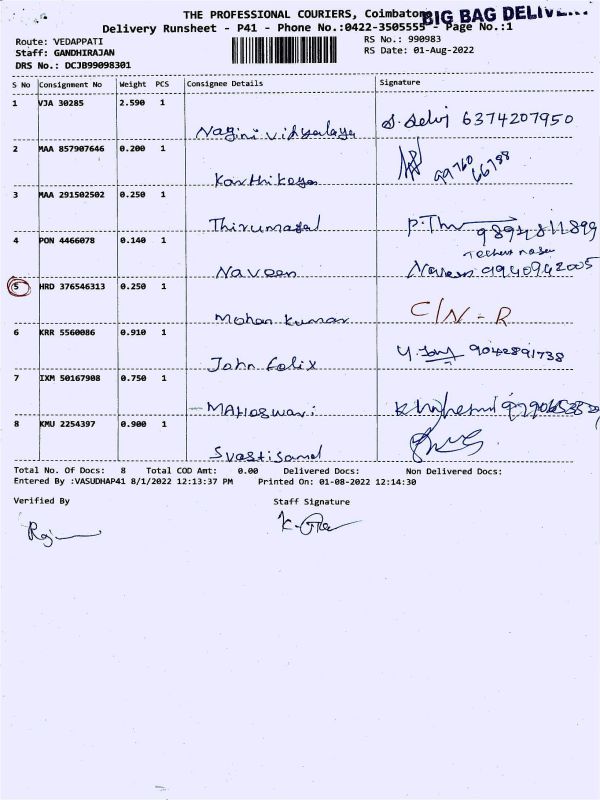 THE PROFESSIONAL COURIERS, Coimbatore
BIG BAG DELIV
Delivery Runsheet - P41 - Phone No.:0422-3505555 - Page No.:1
Route: VEDAPPATI
RS No.: 990983
Staff: GANDHIRAJAN
RS Date: 01-Aug-2022
DRS No.: DCJB99098301
S No Consignment No Weight PCS Consignee Details Signature
1 VJA 30285 2.590 1
Nagini vidyalaya S. Selvi 6374207950
2 MAA 857907646 0.200 1
Karthikeya 99760 66788
3 MAA 291502502 0.250 1
Thirumagal P. Thir 9894811899
4 PON 4466078 0.140 1
Naveen Naveen 9940942005
5 HRD 376546313 0.250 1
Mohan kumar C/N - R
6 KRR 5560086 0.910 1
John felix 9042891738
7 IXM 50167908 0.750 1
MAHAswari
8 KMU 2254397 0.900 1
Total No. Of Docs: 8 Total COD Amt: 0.00 Delivered Docs: Non Delivered Docs:
Entered By :VASUDHAP41 8/1/2022 12:13:37 PM Printed On: 01-08-2022 12:14:30
Verified By Staff Signature